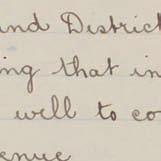 and District
ing that in
will to co
enue